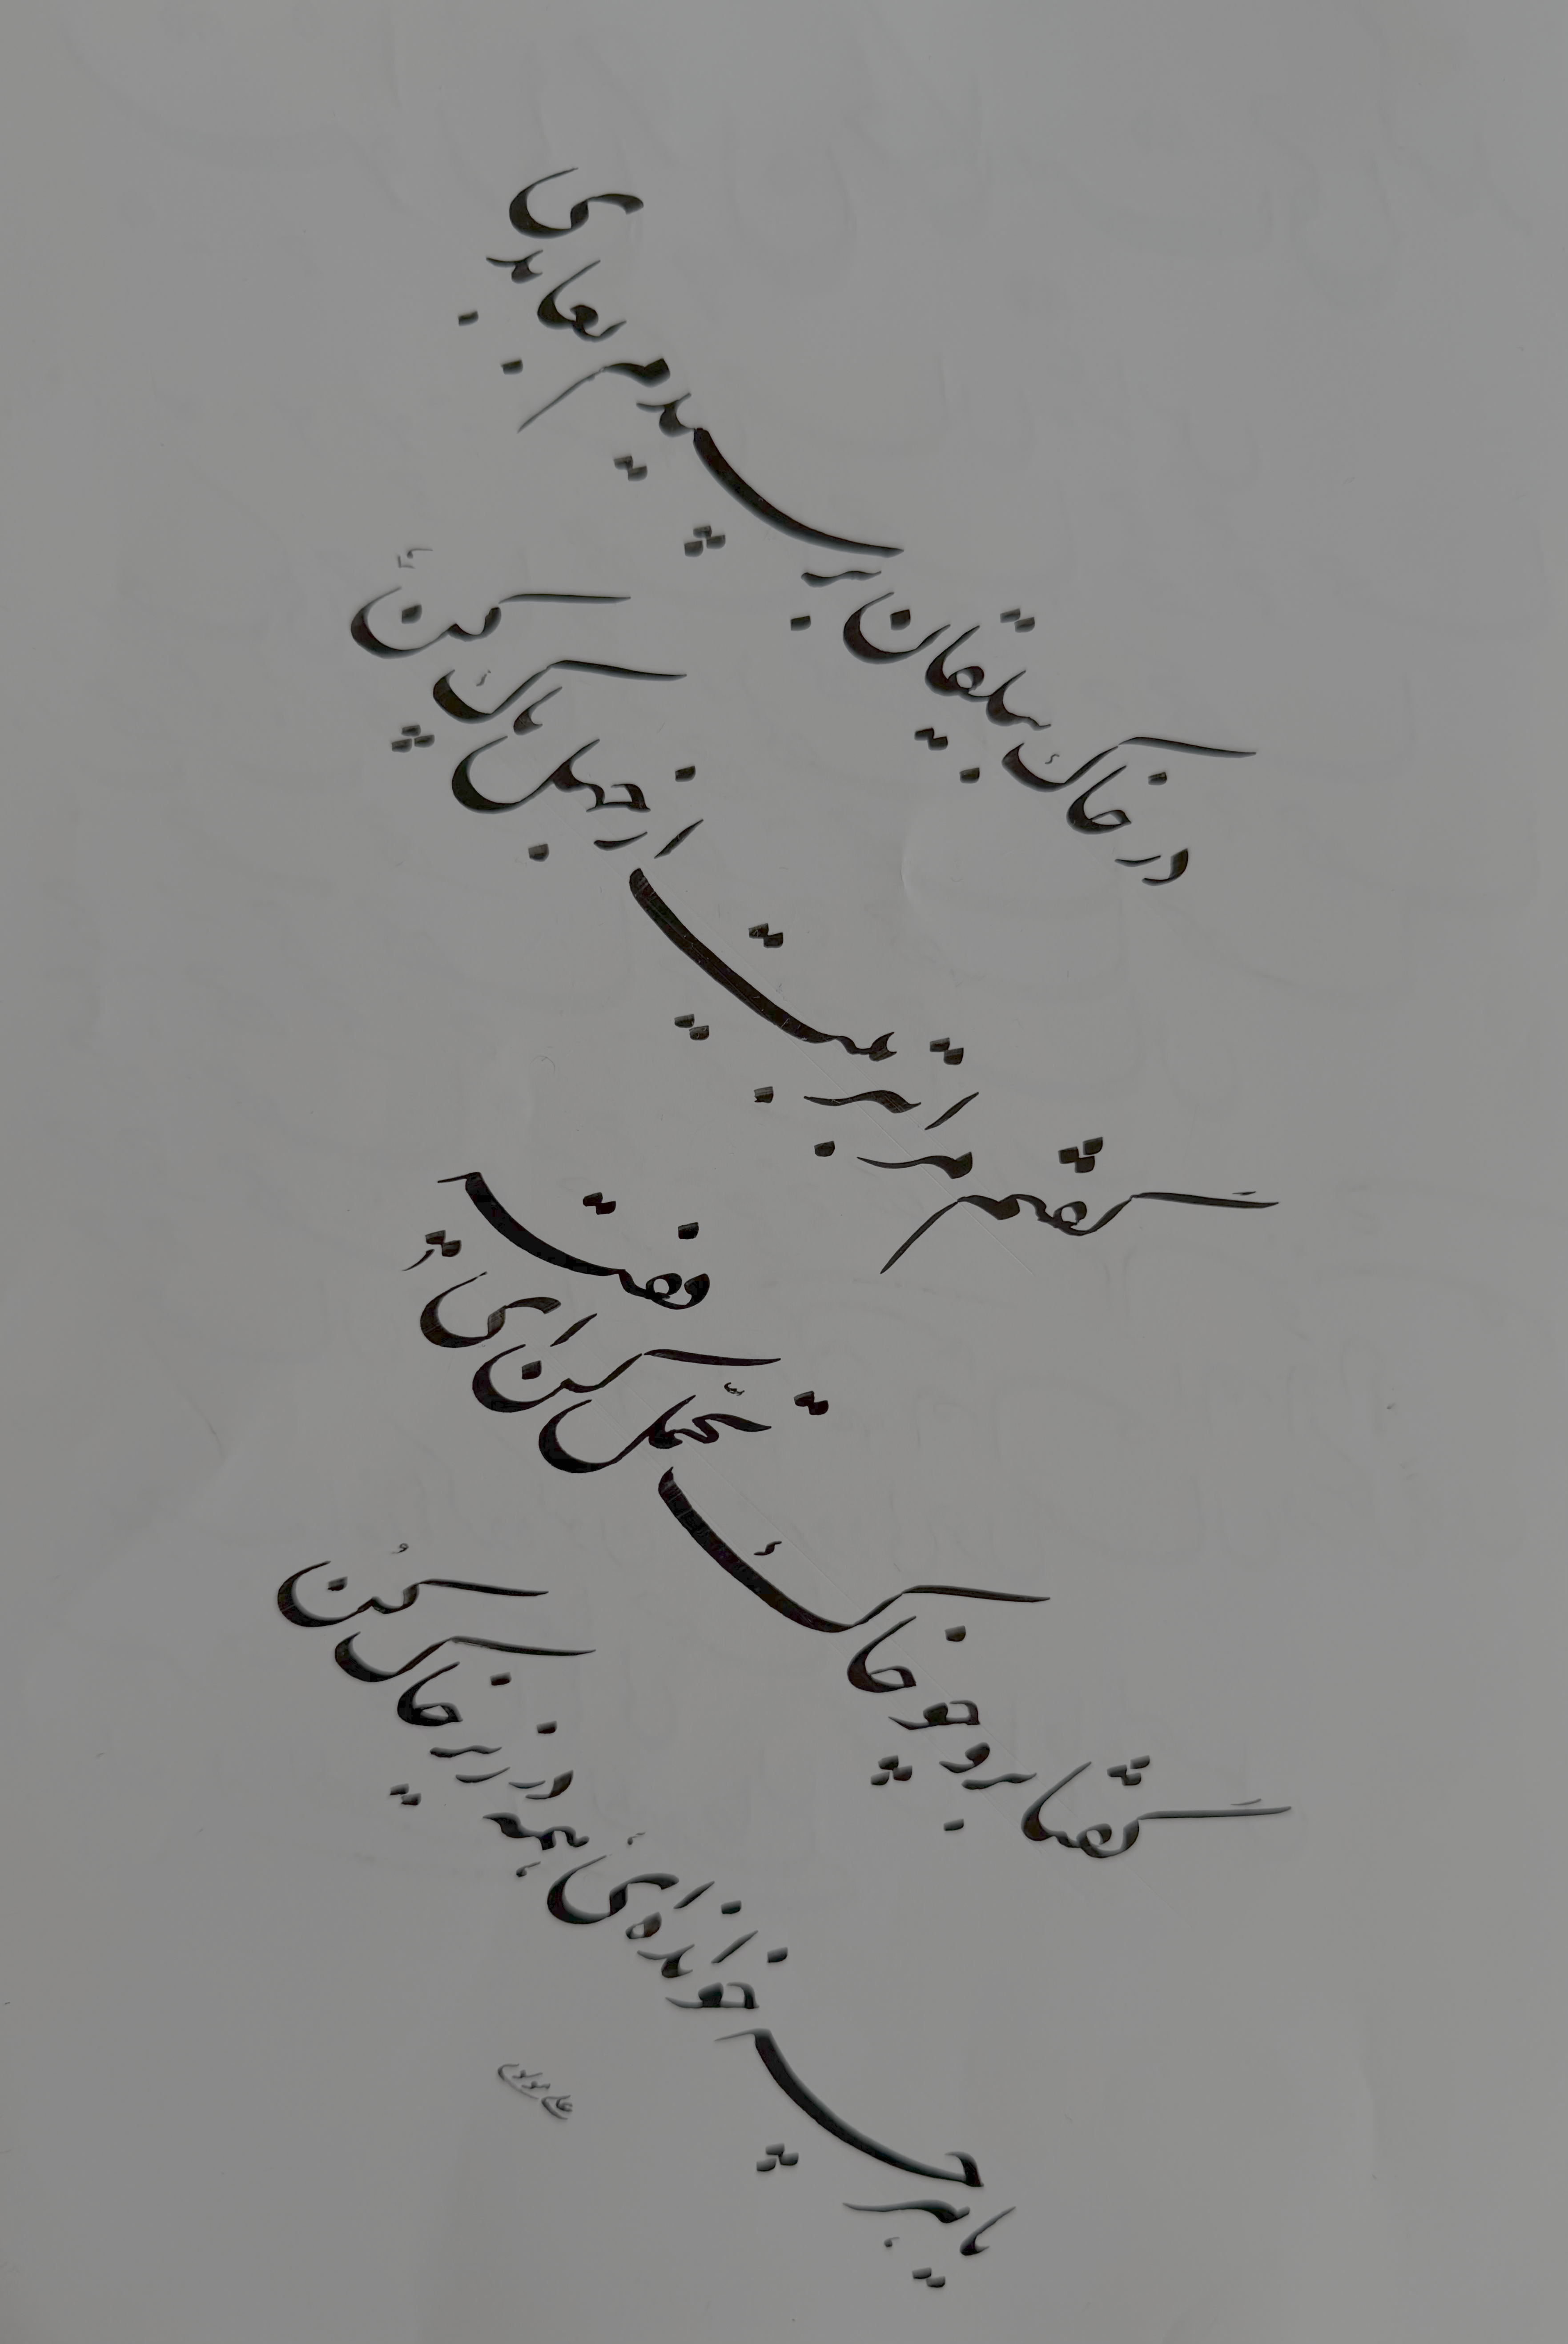 در خاک بیلقان برسیدم بعابدی
گفتم مرا بتربیت از جهل پاک کن
گفتا برو چو خاک تحمّل کن ای فقیه
یا هر چه خوانده‌ای همه در زیر خاک کُن